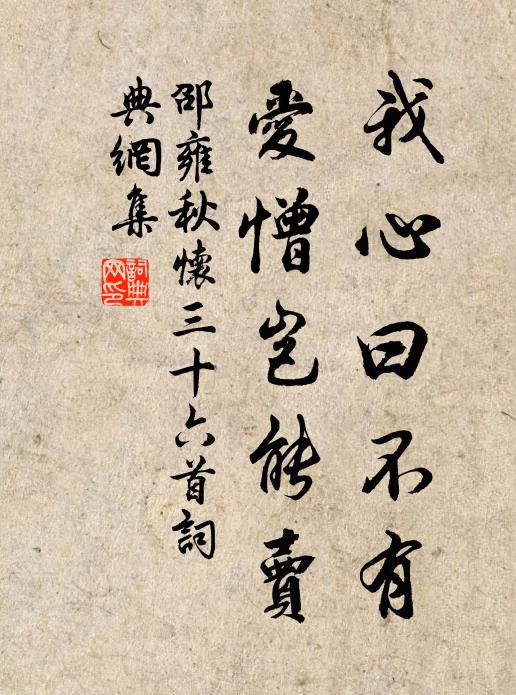 我心曰不有
愛憎豈能賣
邵雍秋懷三十六首詞
典網集
詞典
网印